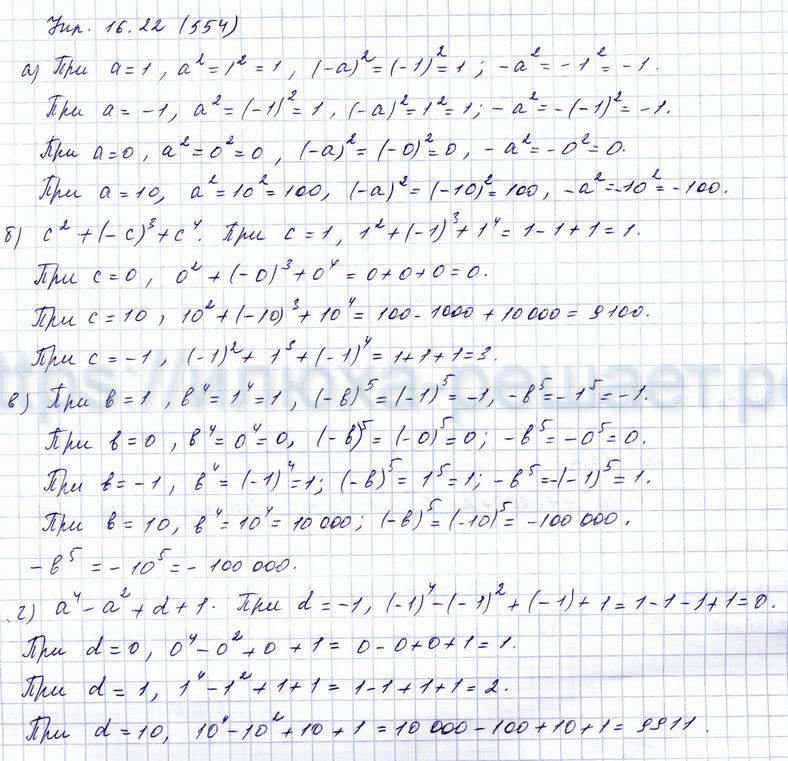 Упр. 16.22 (554)
а) При a=1, a²=1²=1, (-a)²=(-1)²=1; -a²=-1²=-1.
При a=-1, a²=(-1)²=1, (-a)²=1²=1; -a²=-(-1)²=-1.
При a=0, a²=0²=0, (-a)²=(-0)²=0, -a²=-0²=0.
При a=10, a²=10²=100, (-a)²=(-10)²=100, -a²=-10²=-100.
б) c²+(-c)³+c⁴. При c=1, 1²+(-1)³+1⁴=1-1+1=1.
При c=0, 0²+(-0)³+0⁴=0+0+0=0.
При c=10, 10²+(-10)³+10⁴=100-1000+10000=9100.
При c=-1, (-1)²+1³+(-1)⁴=1+1+1=3.
https://илюха-решает.р
в) При в=1, в⁴=1⁴=1, (-в)⁵=(-1)⁵=-1, -в⁵=-1⁵=-1.
При в=0, в⁴=0⁴=0, (-в)⁵=(-0)⁵=0; -в⁵=-0⁵=0.
При в=-1, в⁴=(-1)⁴=1; (-в)⁵=1⁵=1; -в⁵=-(-1)⁵=1.
При в=10, в⁴=10⁴=10 000; (-в)⁵=(-10)⁵=-100 000,
-в⁵=-10⁵=-100 000.
г) a⁴-a²+d+1. При d=-1, (-1)⁴-(-1)²+(-1)+1=1-1-1+1=0.
При d=0, 0⁴-0²+0+1=0-0+0+1=1.
При d=1, 1⁴-1²+1+1=1-1+1+1=2.
При d=10, 10⁴-10²+10+1=10 000-100+10+1=9911.